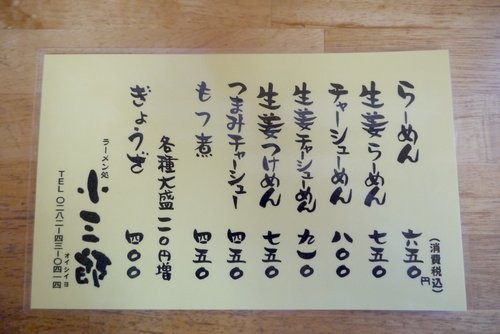 (消費税込)
らーめん 六五〇円
生姜らーめん 七五〇
チャーシューめん 八〇〇
生姜チャーシューめん 九一〇
生姜つけめん 七五〇
つまみチャーシュー 四五〇
もつ煮 四五〇
各種大盛一一〇円増
ぎょうざ 四〇〇
ラーメン処
小三郎
オイシイヨ
TEL〇二八二-四三-〇四一四